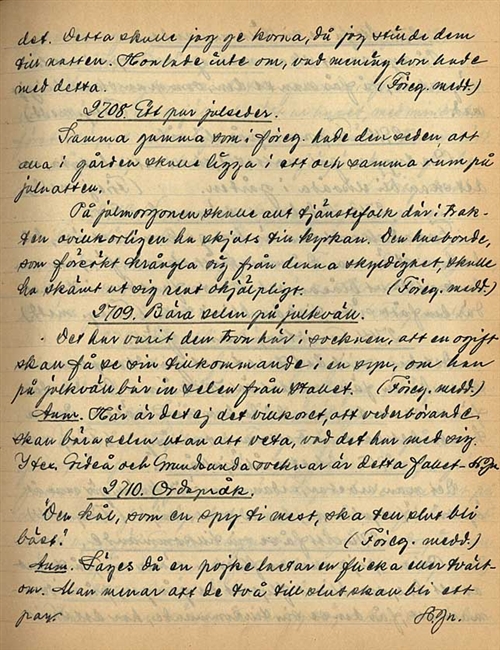 det. Detta skulle jag ge korna, då jag stünde dem
till natten. Hon lade inte om, vad mening hon hade
med detta. (Föreg. medd.)
2708. Ett par julseder.
Samma gumma som i föreg. hade den seden att
alla i gården skulle ligga i ett och samma rum på
julnatten.
På julmorgonen skulle allt tjänstefolk där i trak-
ten ovillkorligen ha skjuts till kyrkan. Den husbonde,
som försökt krångla sig från denna skyldighet, skulle
ha skämt ut sig rent ohjälpligt. (Föreg. medd.)
2709. Bära selen på julkväll.
Det har varit den tron här i socknen, att en ogift
skall få se sin tillkommande i en syn, om han
på julkväll bär in selen från stallet. (Föreg. medd.)
Anm. Här är det ej det villkoret, att vederbörande
skall bära selen utan att veta, vad det har med sig.
I tex. Gideå och Grundsunda socknar är detta fallet. 
2710. Ordspråk.
"Den kål, som en spyr ti mest, ska ten slut bli
bäst." (Föreg. medd.)
Anm. Säges då en pojke lastar en flicka eller tvärt-
om. Man menar att de två till slut skall bli ett
par.